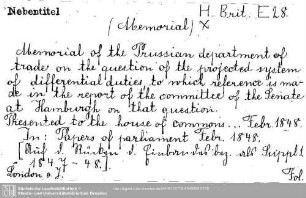 Nebentitel
H. Brit. E 28.
(Memorial) X
Memorial of the Prussian department of
trade on the question of the projected system
of differential duties, to which reference is ma-
de in the report of the committee of the Senate
at Hamburgh on that question.
Presented to the house of commons... Febr. 1848.
In: Papers of parliament Febr. 1848.
[Auf d. Rücken d. Einbandes bez. als Suppl.
1847-48.]
London o. J.
Fol.